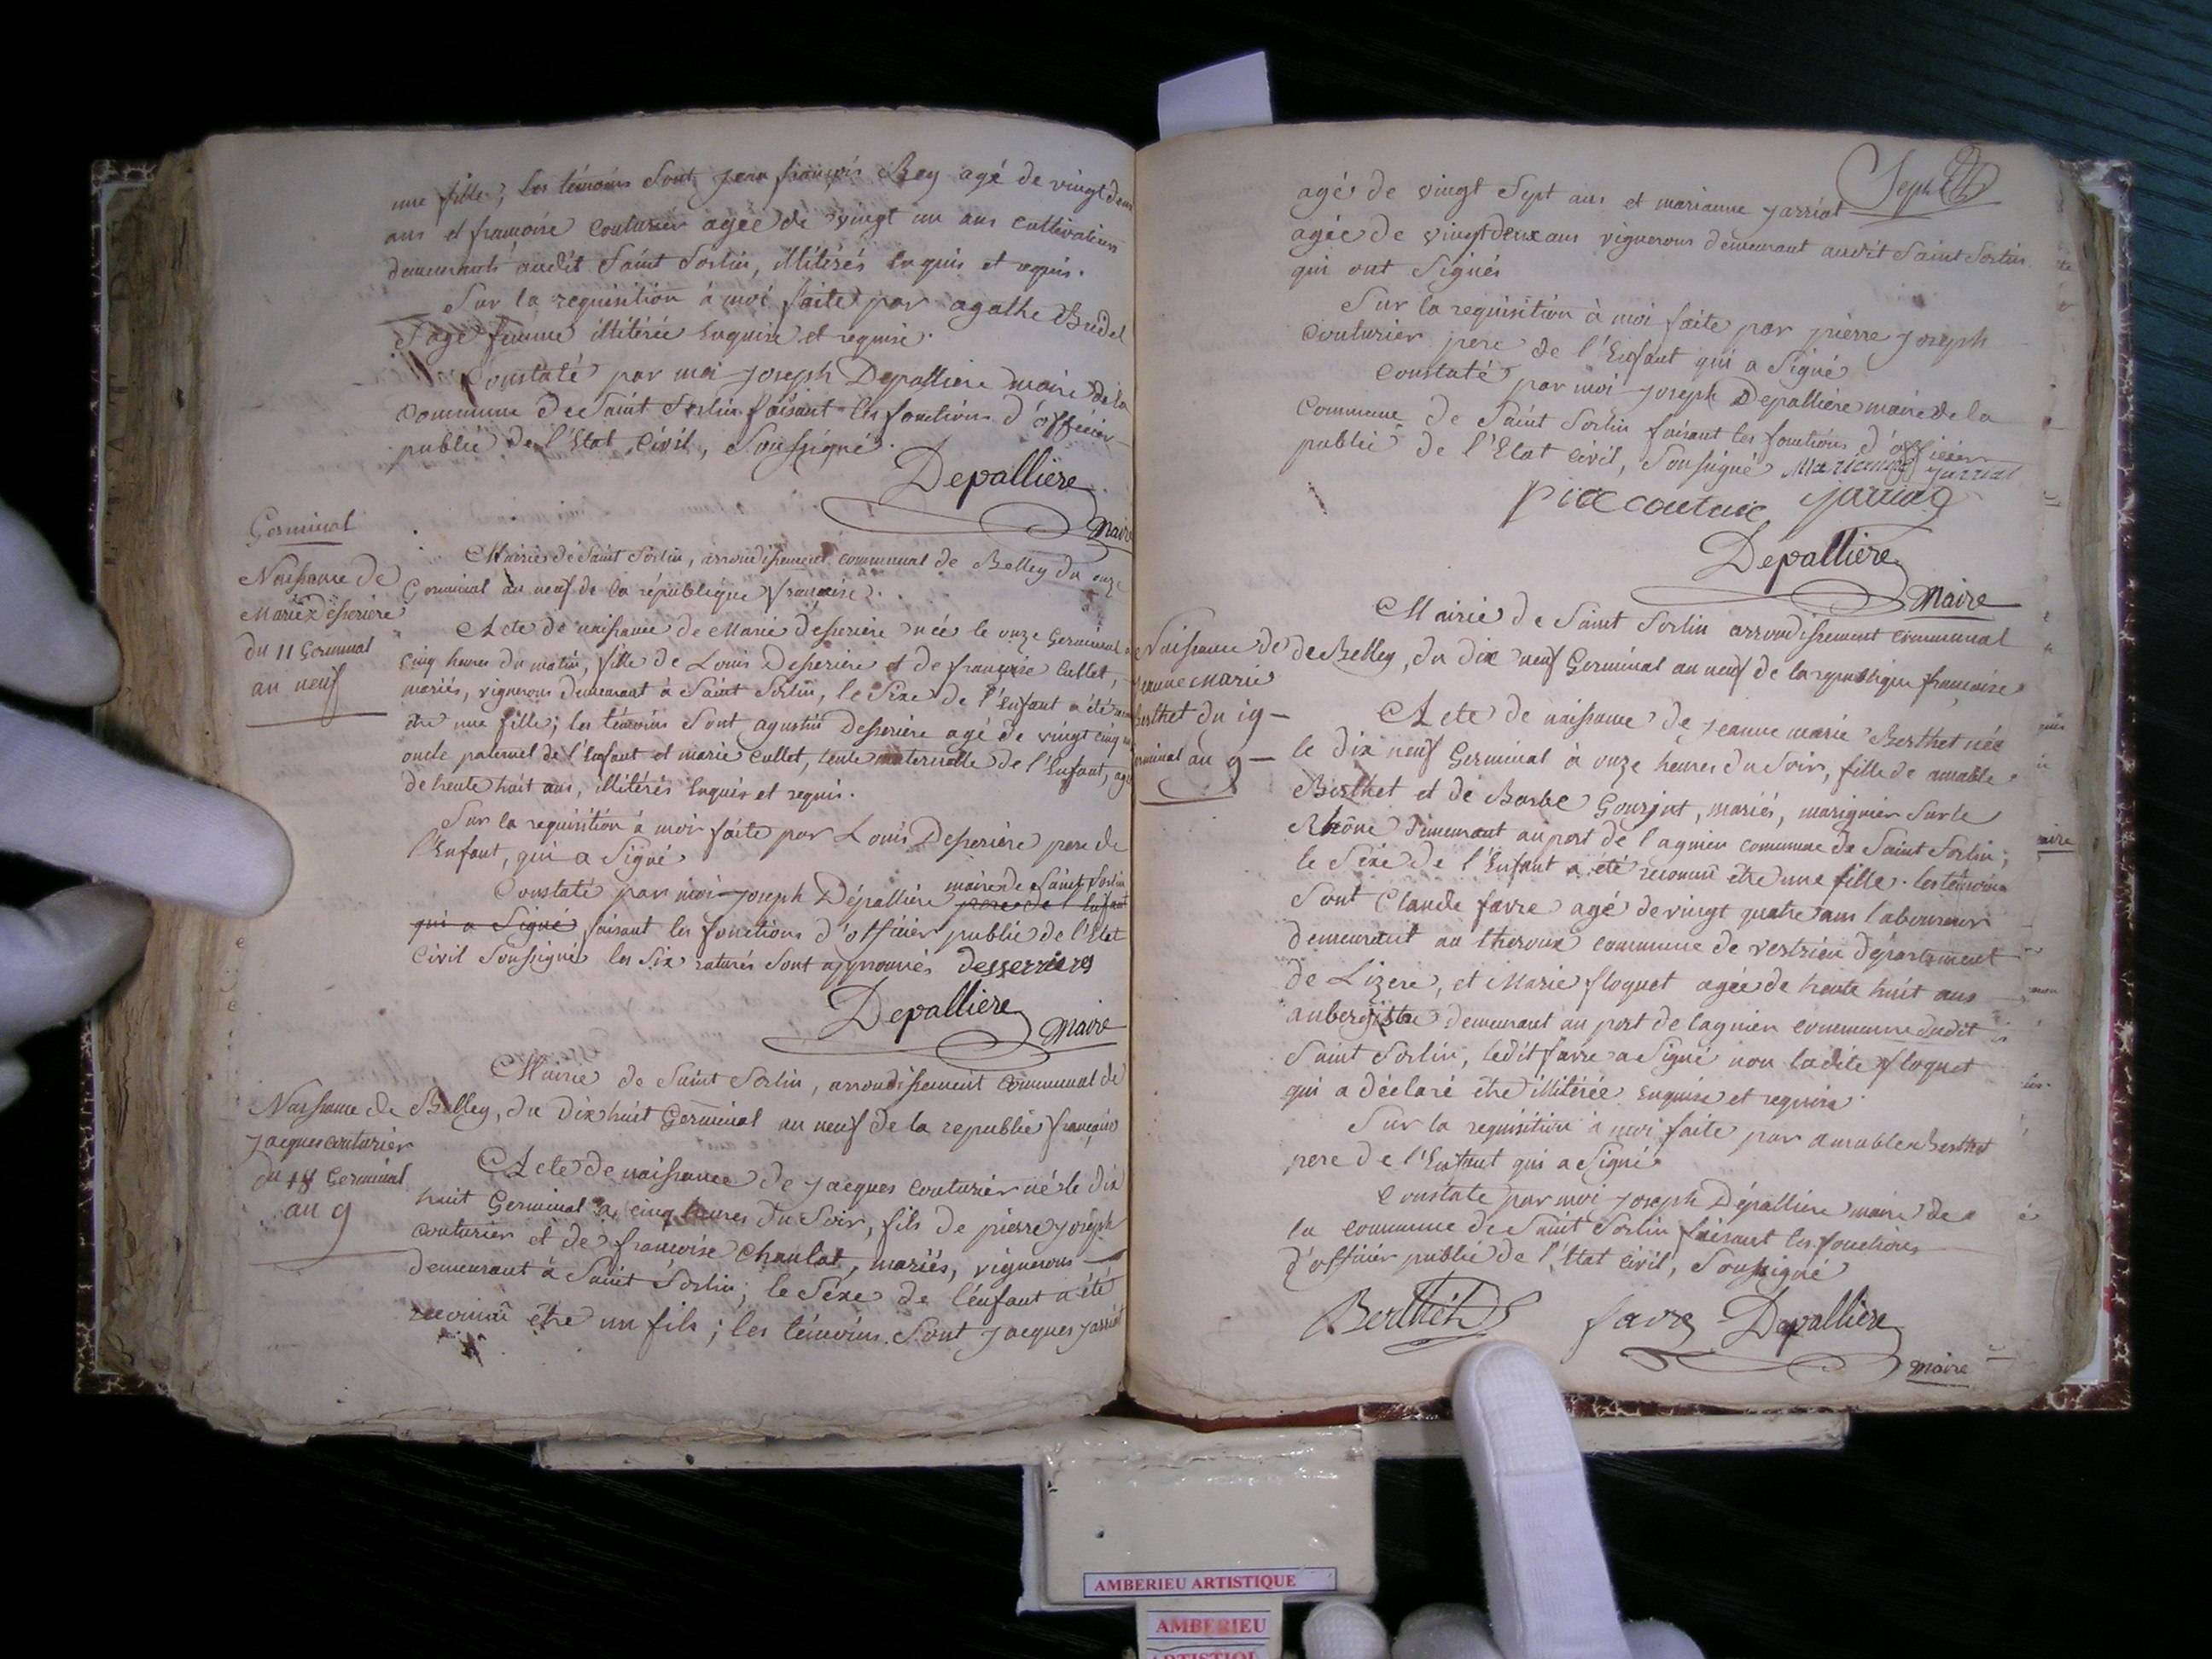 une fille; les témoins sont jean françois Rey agé de vingt deux
ans et francoise couturier agée de vingt un ans cultivateurs
demeurants audit Saint Sorlin, illitérés enquis et requis.
Sur la requisition à moi faite par agathe Budel
Sage femme illitérée enquise et requise.
Constaté par moi Joseph Depalliere maire de la
Commune de Saint Sorlin faisant les fonctions d'officier
public de l'Etat Civil, Soussigné.
Depalliere
Maire
Germinal
Naissance de
Marie desseriere
du 11 Germinal
an neuf
Mairie de Saint Sorlin, arrondissement communal de Belley du onze
Germinal an neuf de la république française.
Acte de naissance de Marie desseriere née le onze Germinal a
cinq heures du matin, fille de Louis Desseriere et de françoise Cullet,
mariés, vignerons demeurant à Saint Sorlin, le Sexe de l'enfant a été
être une fille; les témoins Sont agustin desseriere agé de vingt cinq
oncle paternel de l'enfant et marie Cullet, tente maternelle de l'enfant, agée
de trente huit ans, illitérés enquis et requis.
Sur la requisition à moi faite par Louis Desseriere pere de
l'Enfant, qui a Signé
Constaté par moi Joseph Dépalliere maire de Saint Sorlin
pere de l'enfant
qui a Signé faisant les fonctions d'officier public de l'Etat
Civil Soussigné les Six raturés Sont approuvés desserrieres
Depalliere
Maire
Mairie de Saint Sorlin, arrondissement Communal de
Naissance de
Jacques couturier
du 18 Germinal
an 9
Belley, du Dix huit Germinal an neuf de la republic française
Acte de naissance de Jacques Couturier né le dix
huit Germinal a cinq heures du Soir, fils de pierre joseph
Couturier et de françoise Chanlat, mariés, vignerons
demeurant à Saint Sorlin; le Sexe de l'enfant a été
reconnu être un fils; les témoins Sont Jacques Jarriat
Sept
agé de vingt Sept ans et marianne jarriat
agée de vingt deux ans vignerons demeurant audit Saint Sorlin
qui ont Signés
Sur la requisition à moi faite par pierre Joseph
Couturier pere de l'Enfant qui a Signé
Constaté par moi Joseph Depalliere maire de la
Commune de Saint Sorlin faisant les fonctions d'officier
public de l'Etat Civil, Soussigné Marianne jarriat
Depalliere
Maire
Mairie de Saint Sorlin arrondissement Communal
Naissance de
jeanne Marie
Berthet du 19
germinal an 9
de Belley, du dix neuf Germinal an neuf de la republique francoise
Acte de naissance de Jeanne marie Berthet née
le dix neuf Germinal à onze heures du Soir, fille de amable
Berthet et de Barbe Gourjut, mariés, marignier Sur le
Rhône demeurant au port de lagnieu commune de Saint Sorlin;
le Sexe de l'Enfant a été reconnu être une fille. les témoins
Sont Claude favre agé de vingt quatre ans laboureur
demeurant au theroux commune de vertrieu département
de Lizere, et Marie floquet agée de trente huit ans
aubergiste demeurant au port de lagnieu commune dudit
Saint Sorlin, ledit favre a Signé non ladite floquet
qui a déclaré être illitérée enquise et requise
Sur la requisition à moi faite par amable Berthet
pere de l'Enfant qui a Signé
Constaté par moi Joseph Dépalliere maire de
la commune de Saint Sorlin faisant les fonctions
d'officier public de l'Etat Civil, Soussigné
Berthet favre Depalliere
Maire
AMBERIEU ARTISTIQUE
AMBERIEU
ARTISTIQUE